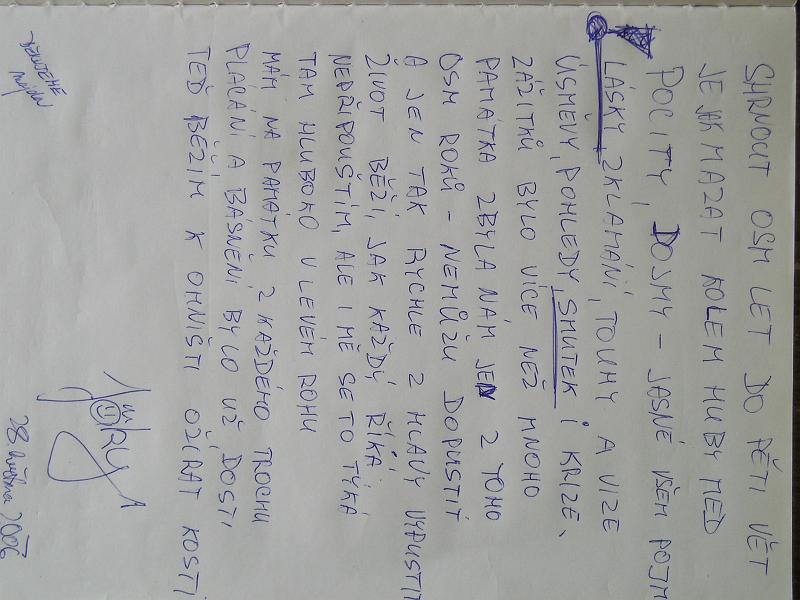 SHRNOUT OSM LET DO PĚTI VĚT
JE JAK MAZAT KOLEM HUBY MED
POCITY, DOJMY - JASNÉ VŠEM POJM
LÁSKY, ZKLAMÁNÍ, TOUHY A VIZE
ÚSMĚVY, POHLEDY, SMUTEK I KRIZE,
ZÁŽITKŮ BYLO VÍCE NEŽ MNOHO
PAMÁTKA ZBYLA NÁM JEN Z TOHO
OSM ROKŮ - NEMŮŽU DOPUSTIT
A JEN TAK RYCHLE Z HLAVY VYPUSTIT
ŽIVOT BĚŽÍ, JAK KAŽDÝ ŘÍKÁ
NEPŘIPOUŠTÍM, ALE I MĚ SE TO TÝKÁ
TAM HLUBOKO V LEVÉM ROHU
MÁM NA PAMÁTKU Z KAŽDÉHO TROCHU
PLACÁNÍ A BÁSNĚNÍ BYLO UŽ DOSTI
TEĎ BĚŽÍM K OHNIŠTI OŽÍRAT KOSTI
DĚKUJEME
28 května 2006